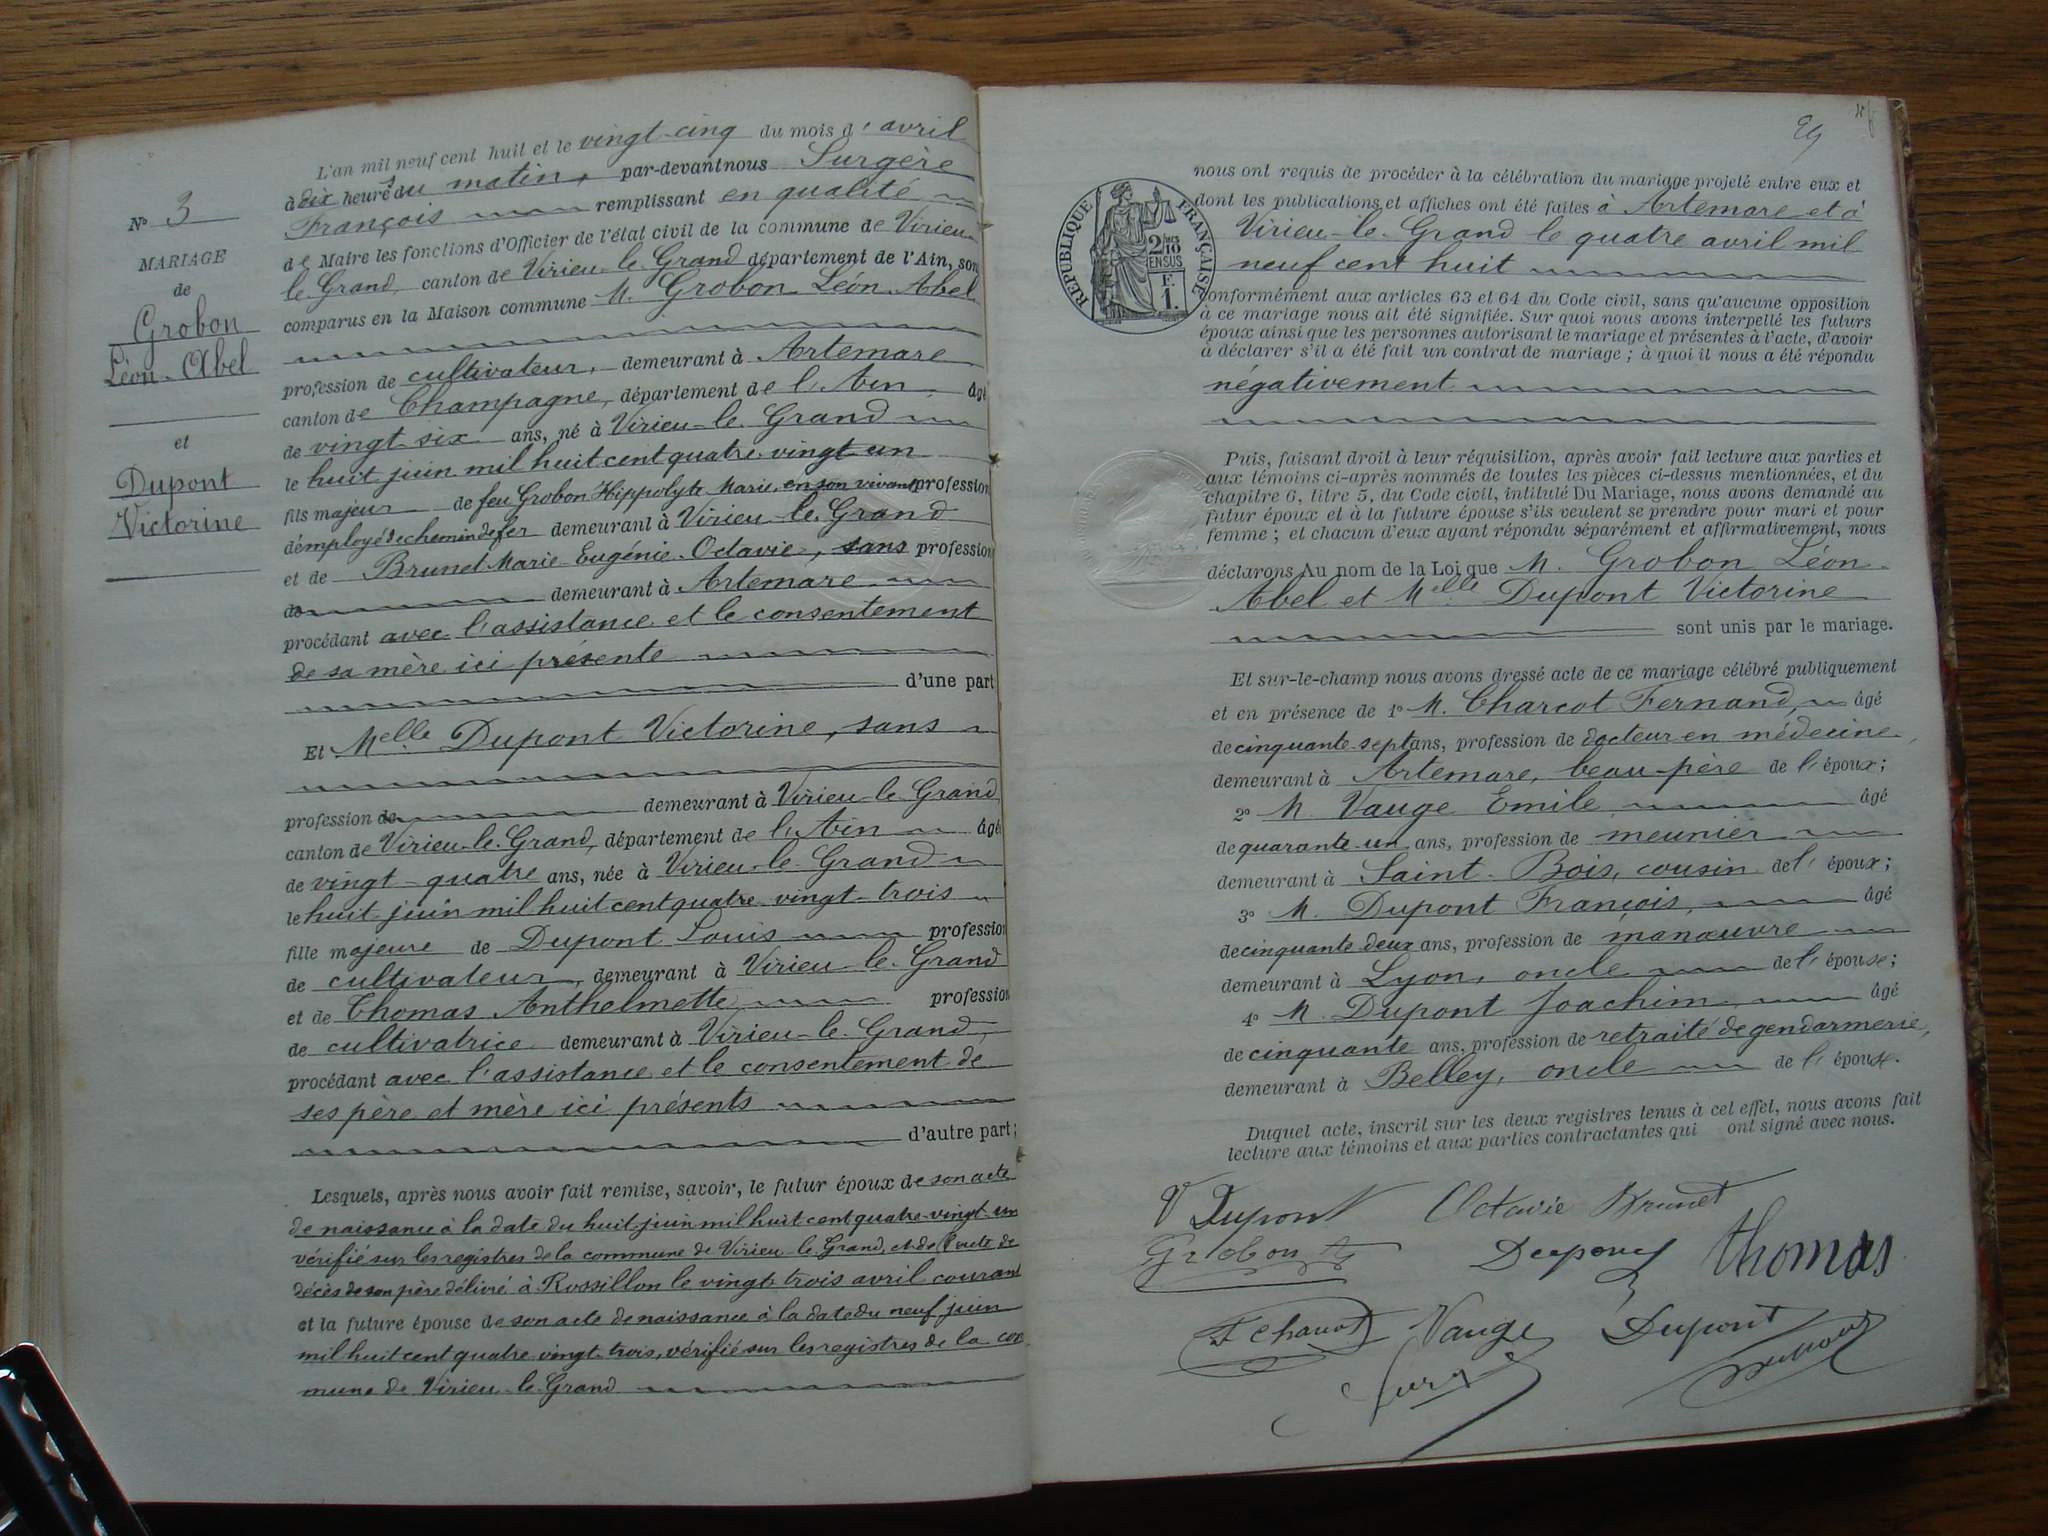 N° 3
MARIAGE
de
Grobon
Léon-Abel
et
Dupont
Victorine
L'an mil neuf cent huit et le vingt-cinq du mois d'avril
à dix heures du matin, par-devant nous Surgère
François remplissant en qualité
de Maire les fonctions d'Officier de l'état civil de la commune de Virieu-
le Grand, canton de Virieu-le-Grand département de l'Ain, son
comparus en la Maison commune M. Grobon Léon Abel
profession de cultivateur, demeurant à Artemare
canton de Champagne, département de l'Ain âgé
de vingt six ans, né à Virieu-le-Grand
le huit juin mil huit cent quatre-vingt-un
fils majeur de feu Grobon Hippolyte Marie, en son vivant profession
d'employé de chemin de fer demeurant à Virieu-le-Grand
et de Brunet Marie-Eugénie-Octavie, sans profession
de demeurant à Artemare
procédant avec l'assistance et le consentement
de sa mère ici présente
d'une part
Et Melle Dupont Victorine, sans
profession de demeurant à Virieu-le-Grand
canton de Virieu-le-Grand, département de l'Ain âgée
de vingt-quatre ans, née à Virieu-le-Grand
le huit juin mil huit cent quatre-vingt-trois
fille majeure de Dupont Louis profession
de cultivateur, demeurant à Virieu-le-Grand
et de Thomas Anthelmette profession
de cultivatrice demeurant à Virieu-le-Grand,
procédant avec l'assistance et le consentement de
ses père et mère ici présents
d'autre part;
Lesquels, après nous avoir fait remise, savoir, le futur époux de son acte
de naissance à la date du huit juin mil huit cent quatre-vingt-un
vérifié sur les registres de la commune de Virieu-le-Grand, et de l'acte de
décès de son père délivré à Rossillon le vingt-trois avril courant
et la future épouse de son acte de naissance à la date du neuf juin
mil huit cent quatre-vingt-trois, vérifié sur les registres de la com
mune de Virieu-le-Grand
29
REPUBLIQUE FRANÇAISE
2/10
EN SUS
F.
1.
nous ont requis de procéder à la célébration du mariage projeté entre eux et
dont les publications et affiches ont été faites à Artemare et à
Virieu-le-Grand le quatre avril mil
neuf cent huit
conformément aux articles 63 et 64 du Code civil, sans qu'aucune opposition
à ce mariage nous ait été signifiée. Sur quoi nous avons interpellé les futurs
époux ainsi que les personnes autorisant le mariage et présentes à l'acte, d'avoir
à déclarer s'il a été fait un contrat de mariage ; à quoi il nous a été répondu
négativement
Puis, faisant droit à leur réquisition, après avoir fait lecture aux parties et
aux témoins ci-après nommés de toutes les pièces ci-dessus mentionnées, et du
chapitre 6, titre 5, du Code civil, intitulé Du Mariage, nous avons demandé au
futur époux et à la future épouse s'ils veulent se prendre pour mari et pour
femme ; et chacun d'eux ayant répondu séparément et affirmativement, nous
déclarons Au nom de la Loi que M. Grobon Léon-
Abel et Melle Dupont Victorine
sont unis par le mariage.
Et sur-le-champ nous avons dressé acte de ce mariage célébré publiquement
et en présence de 1° M. Charcot Fernand, âgé
de cinquante-sept ans, profession de docteur en médecine,
demeurant à Artemare, beau-père de l'époux;
2° M. Vauge Emile âgé
de quarante-un ans, profession de meunier
demeurant à Saint-Bois, cousin de l'époux;
3° M. Dupont François, âgé
de cinquante deux ans, profession de manœuvre
demeurant à Lyon, oncle de l'épouse;
4° M. Dupont Joachim, âgé
de cinquante ans, profession de retraité de gendarmerie,
demeurant à Belley, oncle de l'épouse.
Duquel acte, inscrit sur les deux registres tenus à cet effet, nous avons fait
lecture aux témoins et aux parties contractantes qui ont signé avec nous.
V Dupont Octavie Brunet
Grobon Dupont Thomas
F Charcot Vauge Dupont